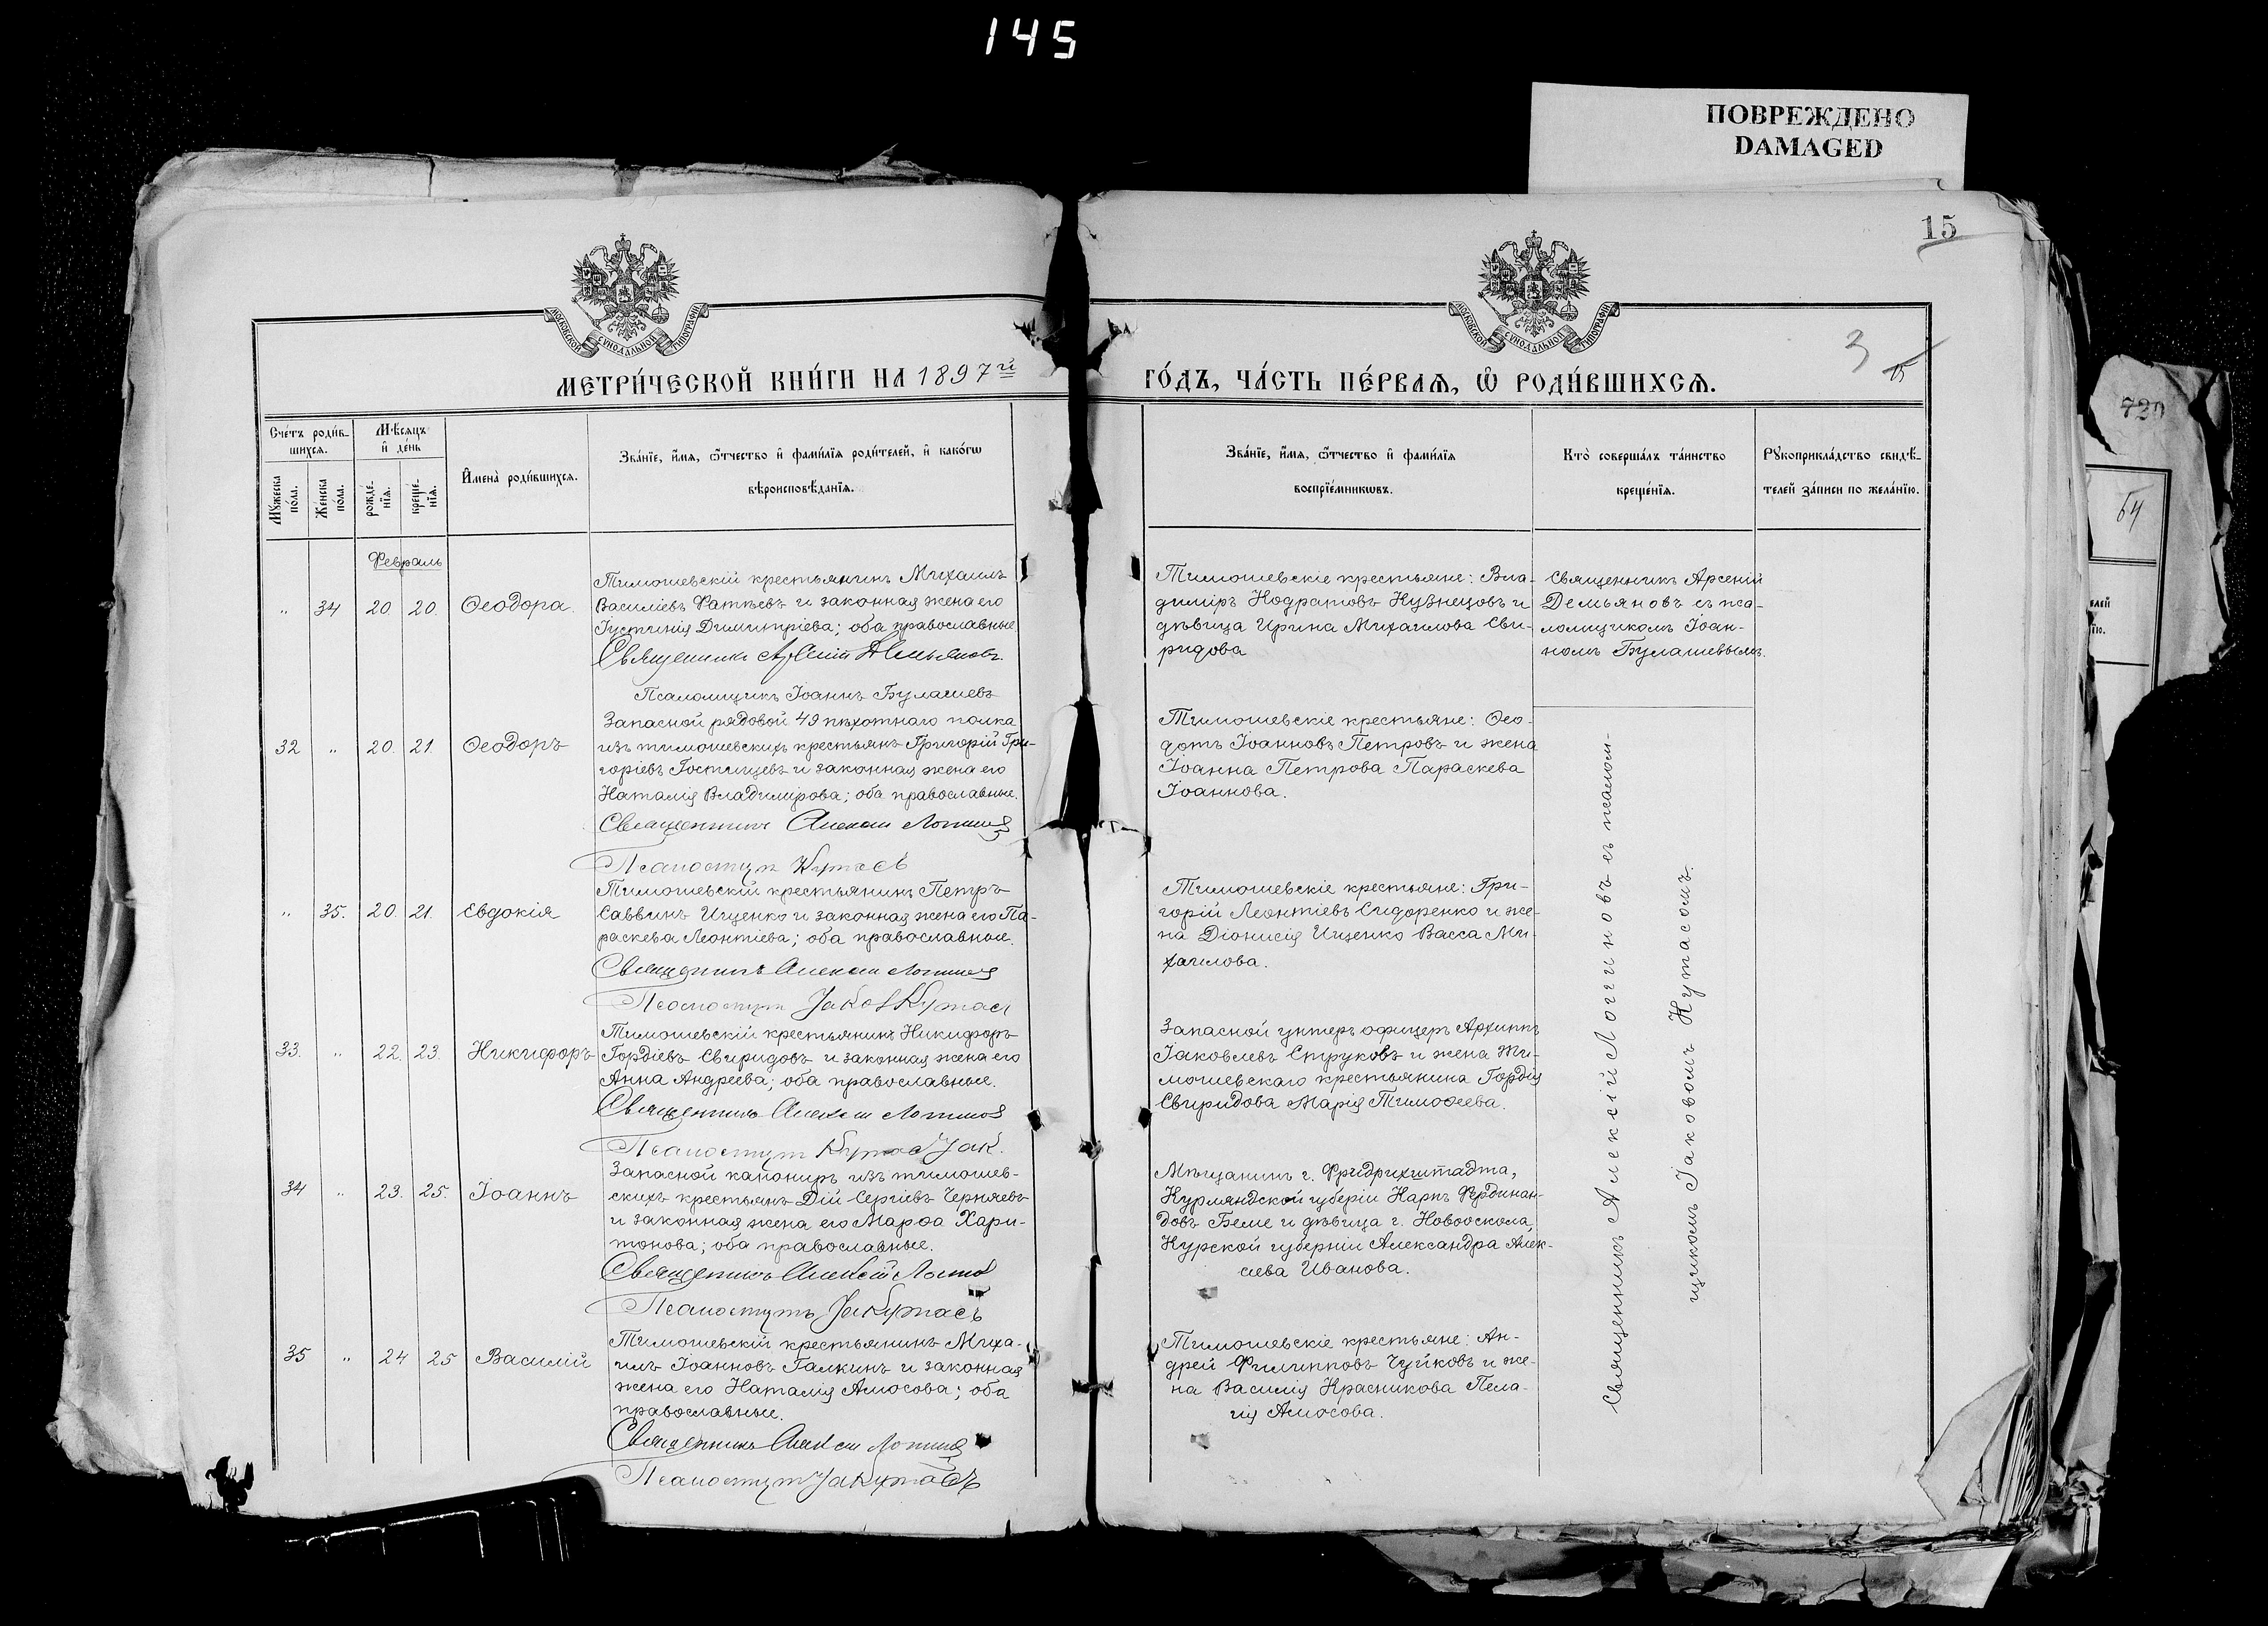 145
ПОВРЕЖДЕНО
DAMAGED
15
МОСКОВСКОЙ СѴНОДАЛЬНОЙ ТИПОГРАФІИ
МОСКОВСКОЙ СѴНОДАЛЬНОЙ ТИПОГРАФІИ
3
15
МЕТРИ́ЧЕСКОЙ КНИ́ГИ НА 1897й
ГО́ДЪ, ЧА́СТЬ ПЕ́РВАѦ, Ѡ РОДИ́ВШИХСѦ.
Сче́тъ роди́в-
шихсѧ.
Мꙋ́жеска
по́ла.
Же́нска
по́ла.
Мѣ́сѧцъ
и҆ де́нь
рожде́-
нїѧ.
креще́-
нїѧ.
И҆мена̀ роди́вшихсѧ.
Зва́нїе, и҆́мѧ, ѻ҆́тчество и҆ фами́лїѧ роди́телей, и҆ како́гѡ
вѣроисповѣ́данїѧ.
Зва́нїе, и҆́мѧ, ѻ҆́тчество и҆ фами́лїѧ
воспрїе́мникѡвъ.
Кто̀ соверша́лъ та́инство
креще́нїѧ.
Рꙋкоприкла́дство свидѣ́-
телей за́писи по жела́нїю.
Февраль
„ 34 20. 20. Ѳеодора.
Тимошевскій крестьянинъ Михаилъ
Василіевъ Фатѣевъ и законная жена его
Іустинія Димитріева; оба православные
Священникъ Арсеній Демьяновъ.
Псаломщикъ Іоаннъ Булашевъ
Тимошевскіе крестьяне: Вла-
диміръ Кодратовъ Кузнецовъ и
дѣвица Ирина Михаилова Сви-
ридова
Священникъ Арсеній
Демьяновъ съ пса-
ломщикомъ Іоан-
номъ Булашевымъ.
32 „ 20. 21. Ѳеодоръ
Запасной рядовой 49 пѣхотнаго полка
изъ тимошевскихъ крестьянъ Григорій Гри-
горіевъ Гостищевъ и законная жена его
Наталія Владимірова; оба православные.
Священникъ Алексій Логгинов
Псаломщикъ Кутасъ
Тимошевскіе крестьяне: Ѳео-
дотъ Іоанновъ Петровъ и жена
Іоанна Петрова Параскева
Іоаннова.
Священникъ Алексій Логгиновъ съ псалом-
щикомъ Іаковомъ Кутасомъ.
„ 35. 20. 21. Евдокія
Тимошевскій крестьянинъ Петръ
Саввинъ Ищенко и законная жена его Па-
раскева Леонтіева; оба православные.
Священникъ Алексій Логгинов
Псаломщик Іаков Кутас
Тимошевскіе крестьяне: Гри-
горій Леонтіевъ Сидоренко и же-
на Діонисія Ищенко Васса Ми-
хаилова.
33. „ 22. 23. Никифоръ
Тимошевскій крестьянинъ Никифоръ
Гордіевъ Свиридовъ и законная жена его
Анна Андреева; оба православные.
Священникъ Алексій Логгинов
Псаломщик Кутас Іак.
Запасной унтеръ офицеръ Архиппъ
Іаковлевъ Струковъ и жена Ти-
мошевскаго крестьянина Гордія
Свиридова Марія Тимоѳеева.
34 „ 23. 25. Іоаннъ
Запасной канониръ изъ тимошев-
скихъ крестьянъ Дій Сергіевъ Черняевъ
и законная жена его Марѳа Хари-
тонова; оба православные.
Священникъ Алексій Логгинов
Псаломщикъ Іа Кутасъ
Мѣщанинъ г. Фридрихштадта,
Курляндской губерніи Карлъ Фердинан-
довъ Беме и дѣвица г. Новооскола,
Курской губерніи Александра Алек-
сѣева Иванова.
35 „ 24 25 Василій
Тимошевскій крестьянинъ Миха-
илъ Іоанновъ Галкинъ и законная
жена его Наталія Амосова; оба
православные.
Священникъ Алексій Логгинов
Псаломщик Іа Кутасъ
Тимошевскіе крестьяне: Ан-
дрей Филипповъ Чуйковъ и же-
на Василія Красникова Пела-
гія Амосова.
720
64